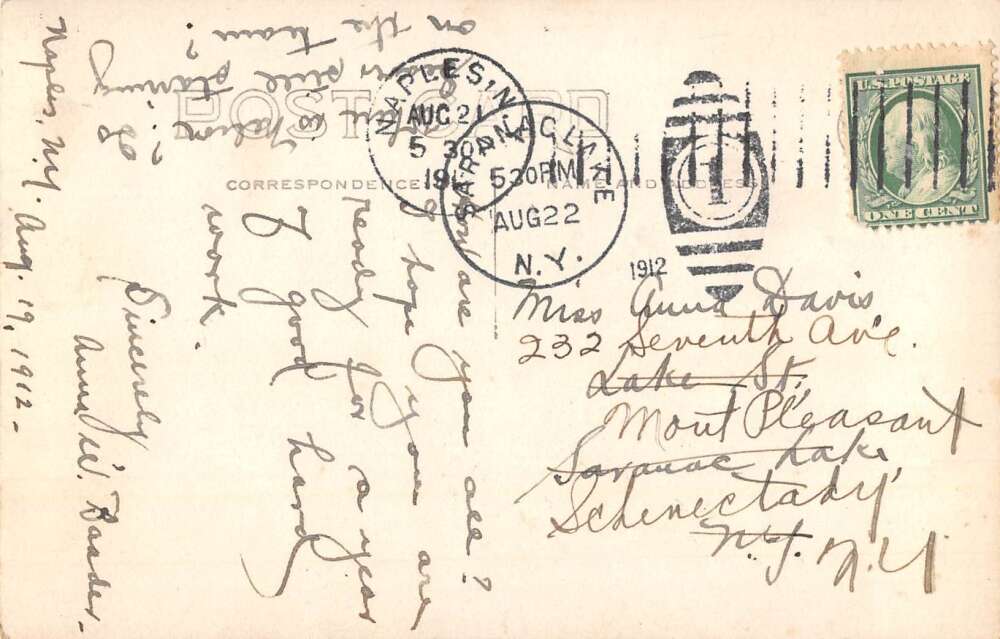 Naples, N.Y. Aug. 19, 1912-
How are you all?
I hope you are
ready for a year
of good hard
work.
Sincerely
Anna W. Baader-
still starring
on the team?
POST CARD
CORRESPONDENCE
NAME AND ADDRESS
NAPLES, N.Y.
AUG 21
5 30
191
SARANAC LAKE
5 30 PM
AUG 22
N.Y.
1912
1
U.S. POSTAGE
ONE CENT
Miss Anna Davis
232 Seventh Ave.
Lake St.
Mont Pleasant
Saranac Lake
Schenectady
N.Y. N.Y